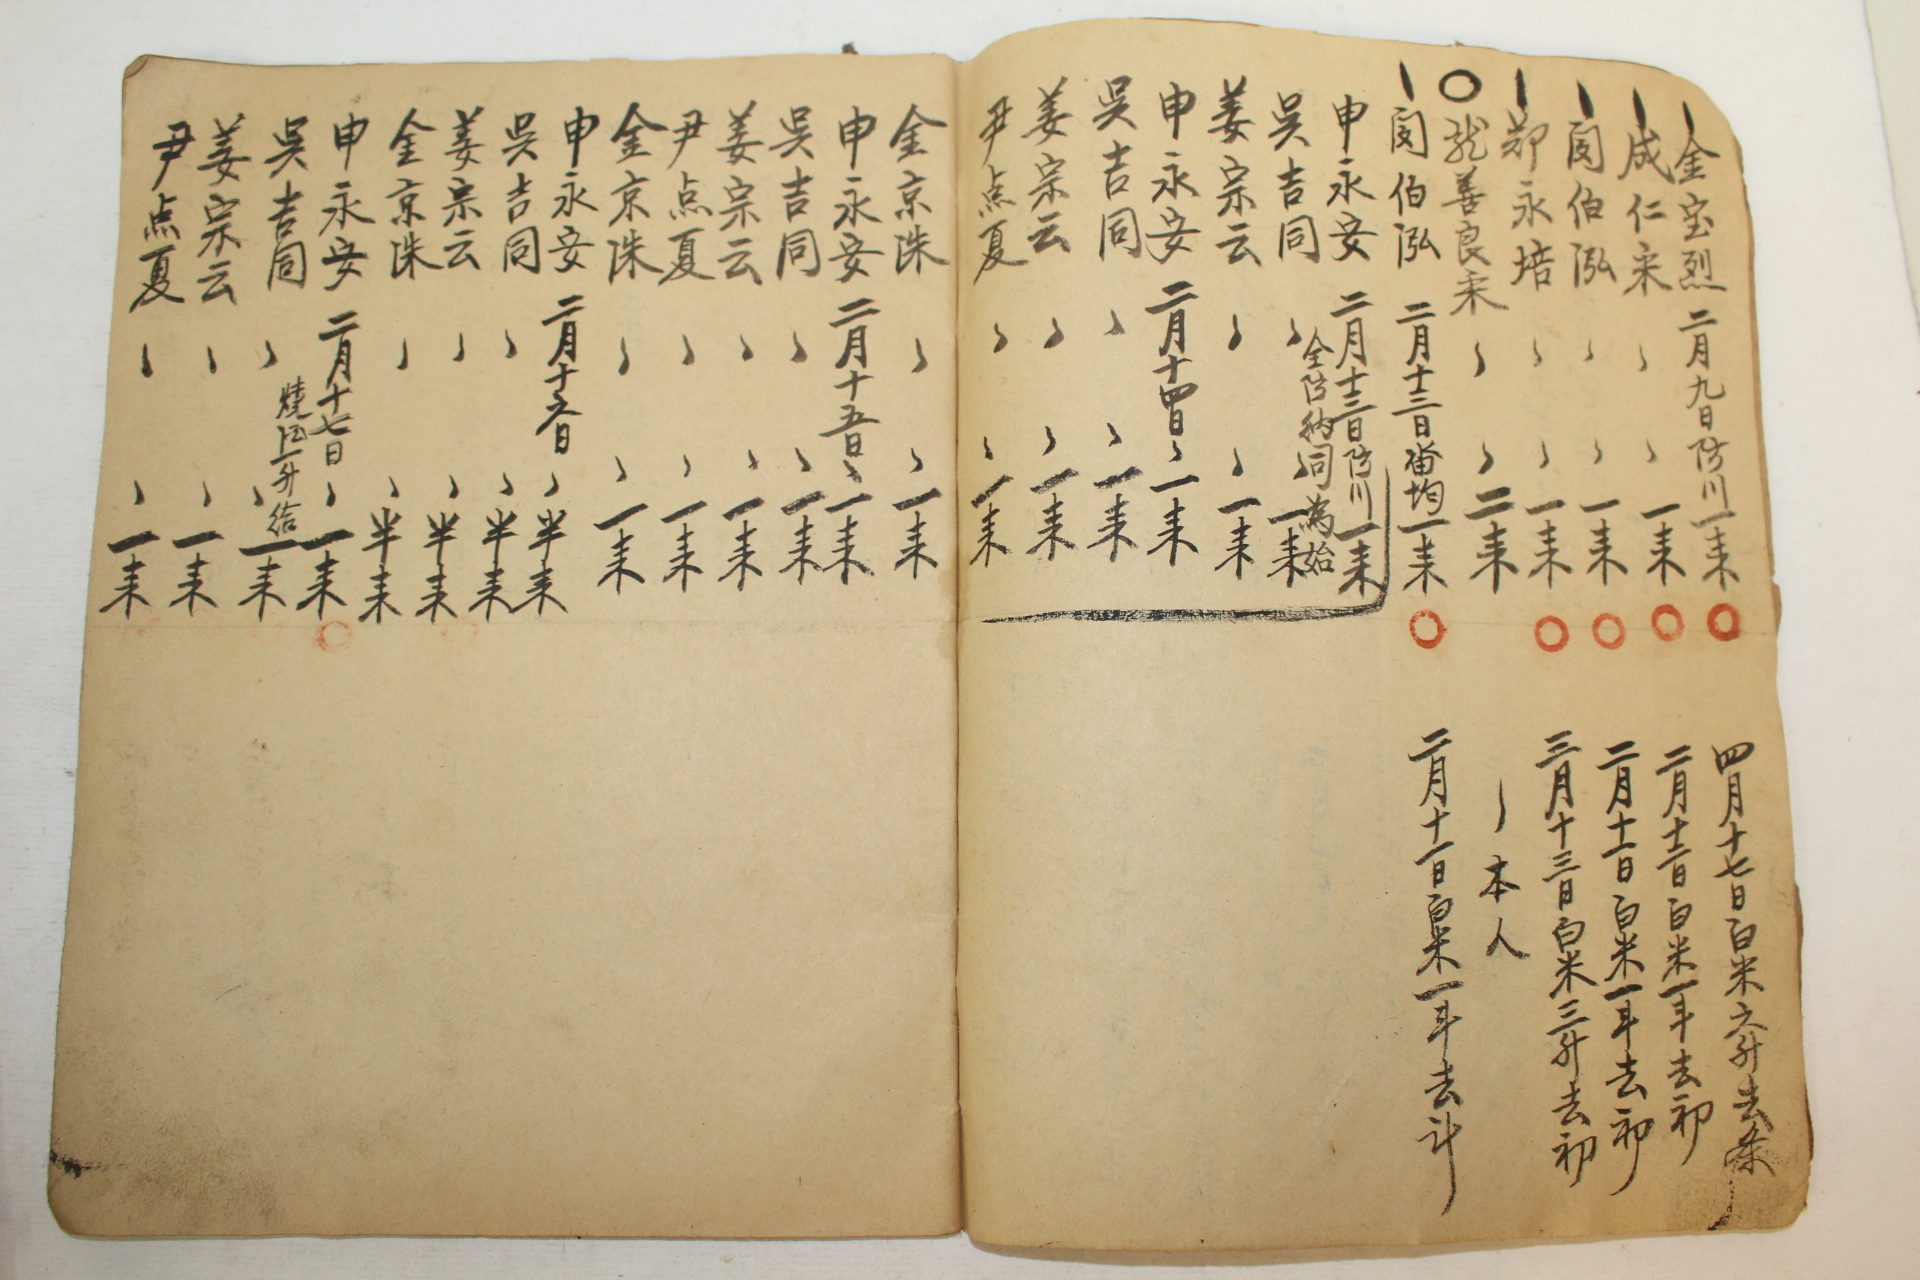 金宝烈 二月九日防川一来 四月十七日白米六升去条
成仁宋 〻 〻 一来 二月十二日白米一斗去初
閔伯泓 〻 〻 一来 二月十一日白米一斗去初
鄭永培 〻 〻 一来 三月十三日白米三升去初
龍善良宋 〻 〻 二来 〻 本人
閔伯泓 二月十二日畓均一来 二月十一日白米一斗去计
申永安 二月十三日防川一来
全防納同為始
吳吉同 〻 〻 一来
姜宗云 〻 〻 一来
申永安 二月十四日 〻 一来
吳吉同 〻 〻 一来
姜宗云 〻 〻 一来
尹点夏 〻 〻 一来
金京洙 〻 〻 一来
申永安 二月十五日 〻 一来
吳吉同 〻 〻 一来
姜宗云 〻 〻 一来
尹点夏 〻 〻 一来
金京洙 〻 〻 一来
申永安 二月十六日 〻 半来
吳吉同 〻 〻 半来
姜宗云 〻 〻 半来
金京洙 〻 〻 半来
申永安 二月十七日 〻 一来
吳吉同 〻 〻 一来
燒酒一升
姜宗云 〻 〻 一来
尹点夏 〻 〻 一来